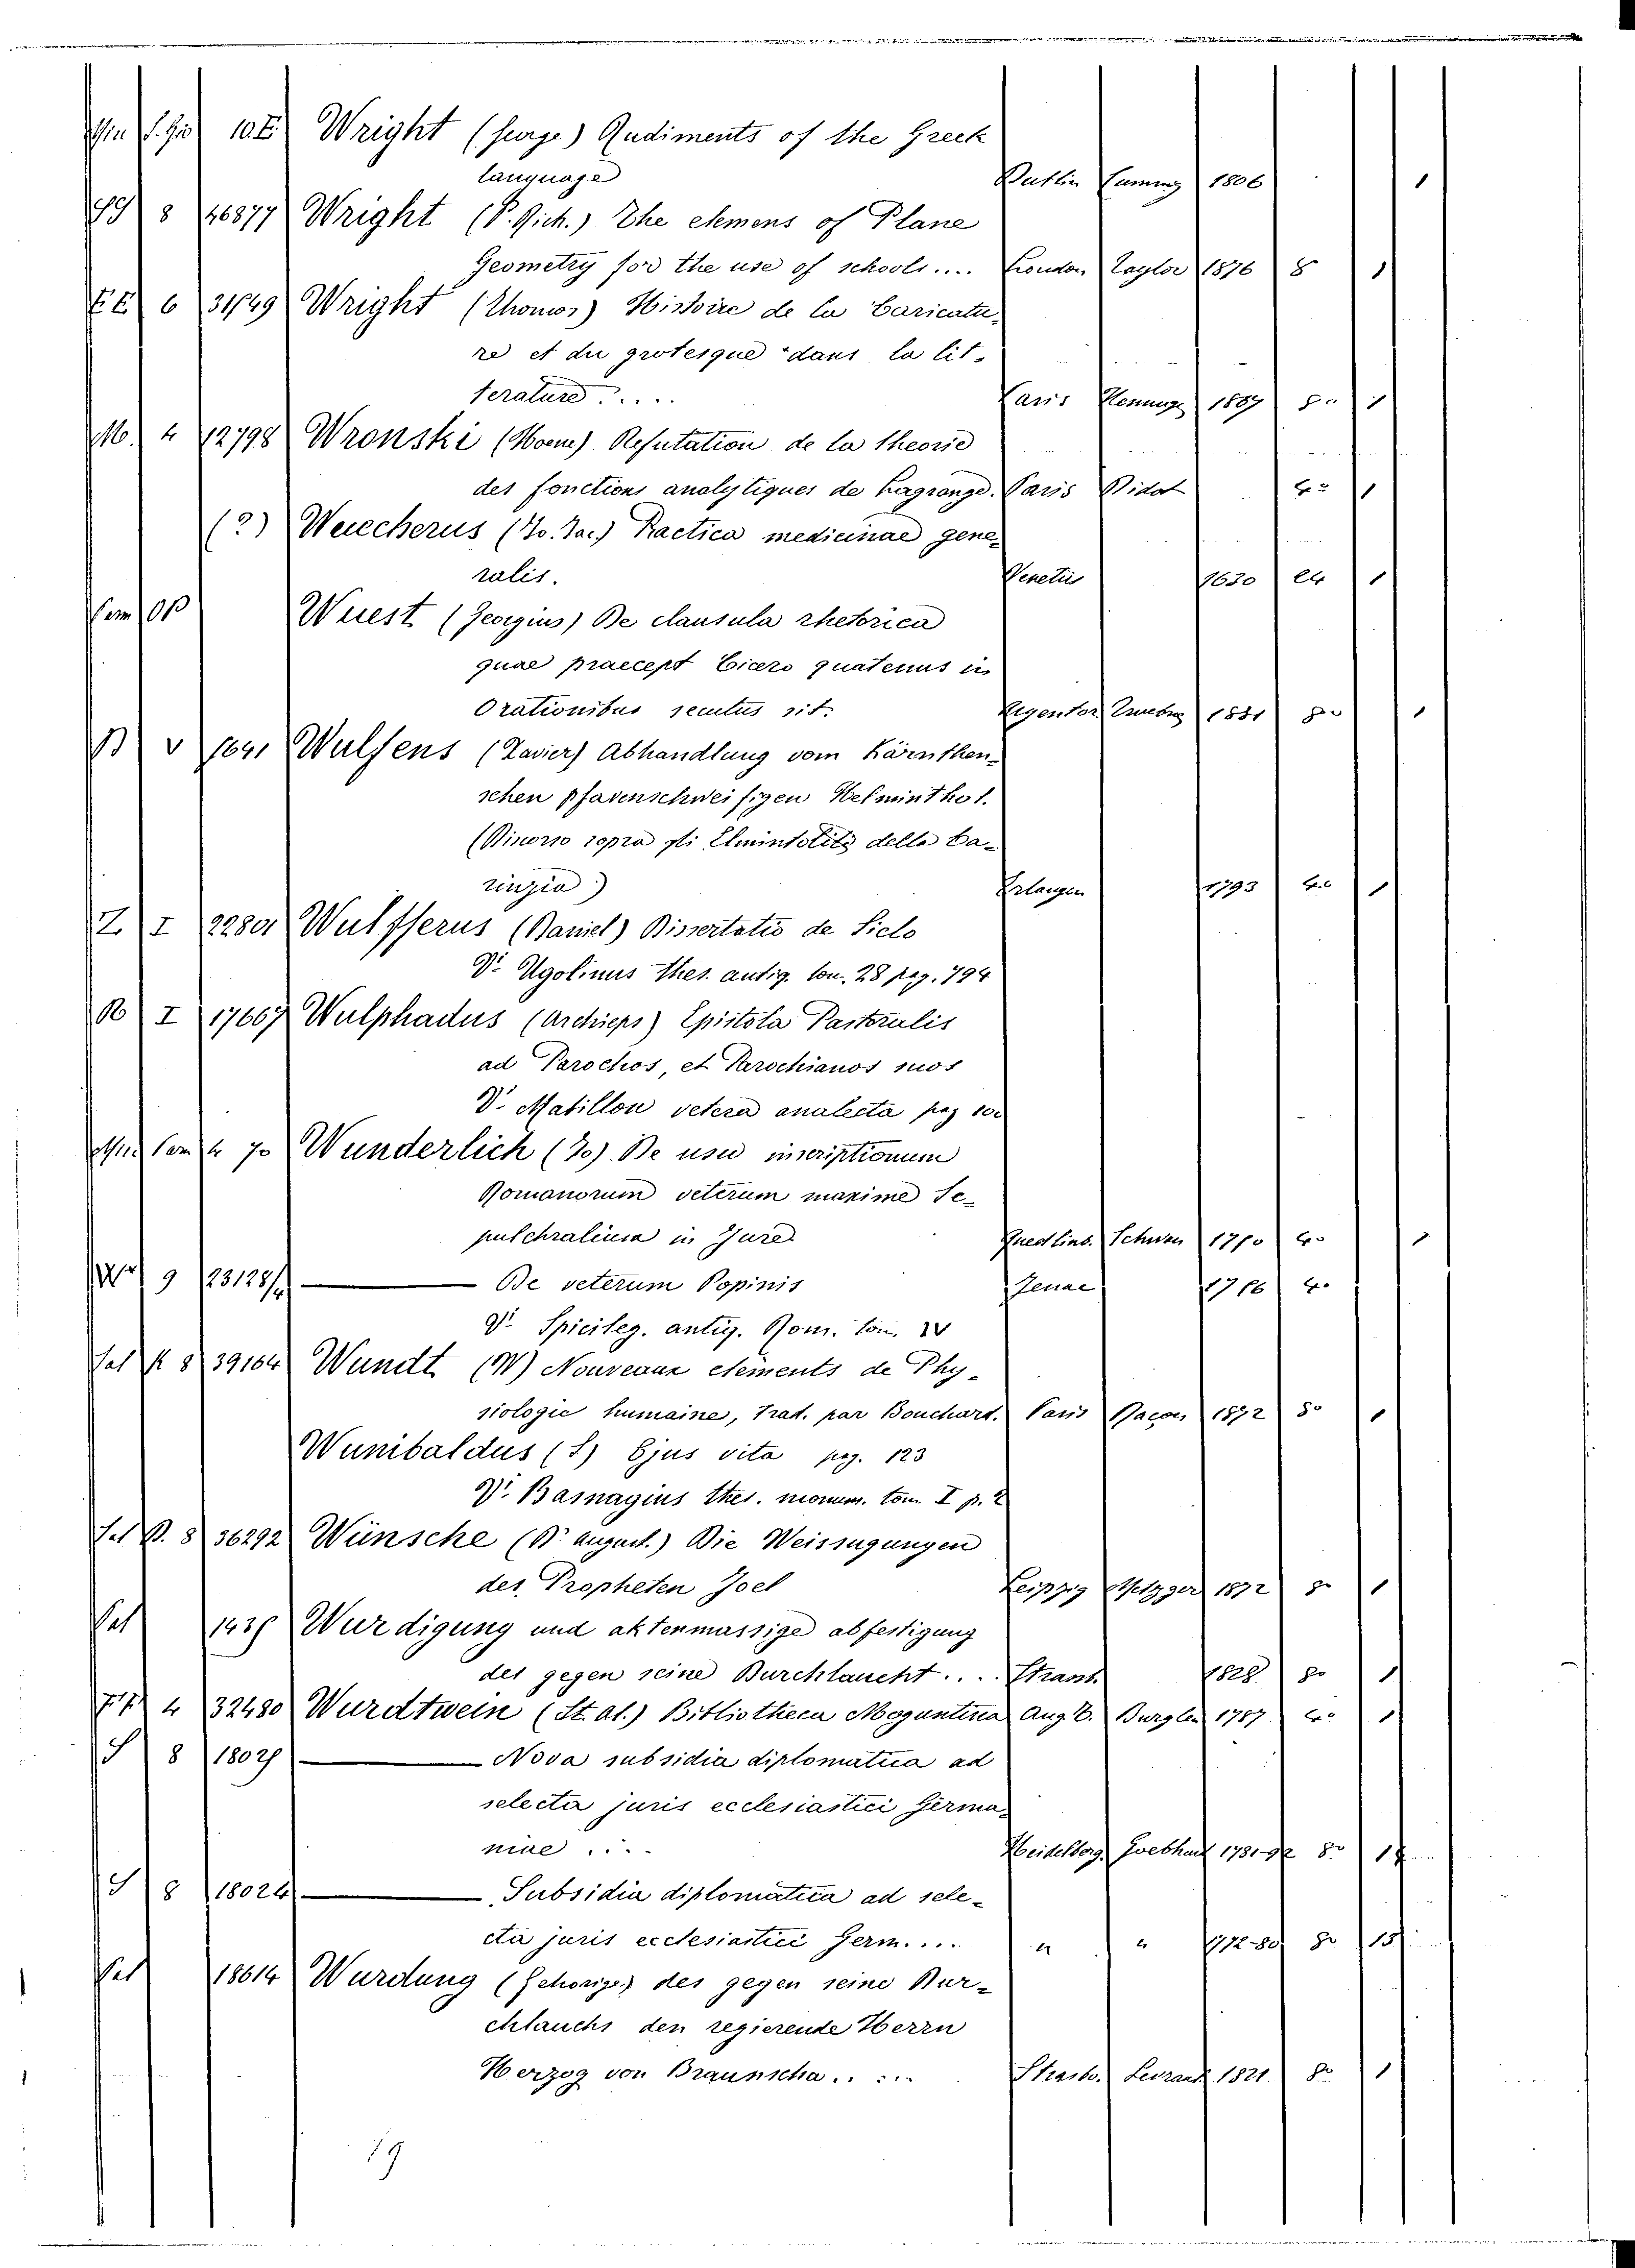 Wright (surge) Rudiments of the Greek
language Dublin Cuming 1806 1
8 46877 Wright (P. Rich.) The elemens of Plane
Geometry for the use of schools.... London Taylor 1876 8 1
6 Wright (Thomas) Histoire de la Caricatu-
re et du grotesque dans la lit-
terature..... Paris 8° 1
M. 4 12798 Wronski (Hoene) Refutation de la theorie
des fonctions analytiques de Lagrange. Paris Didot 4° 1
(?) Wuecherus (Jo. Jac.) Practica medicinae gene-
ralis. Venetiis 1630 24 1
Wuest (Georgius) De clausula rhetorica
quae praecept Cicero quatenus in
Orationibus secutus sit. Argentor. 1881 8° 1
V Wulfens (Xavier) Abhandlung vom Kärnthen-
schen pfavenschweifigen Helminthol.
(Discorso sopra gli Elmintoliti della Ca-
rinzia) Erlangen 1793 4° 1
Z. I Wulfferus (Daniel) Dissertatio de Siclo
V. Ugolinus thes. antiq. tom. 28 pag. 794
I 17667 Wulphadus (Archieps) Epistola Pastoralis
ad Parochos, et Parochianos suos
V. Mabillon vetera analecta pag 100
4 70 Wunderlich (Jo) De usu inscriptionum
Romanorum veterum maxime Se-
pulchralium in Jure Quedlinb. Schwan 4° 1
9 — De veterum Popinis Jenae 4°
V. Spicileg. antiq. Rom. tom. IV
8 39164 Wundt (W) Nouveaux elements de Phy-
siologie humaine, Trad. par Bouchard. Paris Sacon 1872 8° 1
Wunibaldus (S) Ejus vita pag. 123
V. Basnagius thes. monum. tom. I p. 2
8 36292 Wünsche (Dr August.) Die Weissugungen
des Propheten Joel Leipzig Metzger 1872 8° 1
Wurdigung und aktenmassige abfestigung
des gegen seine Durchlaucht.... Strasb. 1828 8° 1
4 32480 Wurdtwein (St. Al.) Bibliotheca Moguntina Aug V. Burglen 1787 4° 1
S 8 — Nova subsidia diplomatica ad
selecta juris ecclesiastici Germa-
niae .... Heidelberg. Goebhard 1781-92 8°
S 8 18024 — Subsidia diplomatica ad sele-
cta juris ecclesiastici Germ.... " " 1772-80 8°
18614 Wurdung (Gehorige) des gegen seine Dur-
chlauchs den regierende Herrn
Herzog von Braunscha..... Strasb. Levrault 1821 8° 1
19